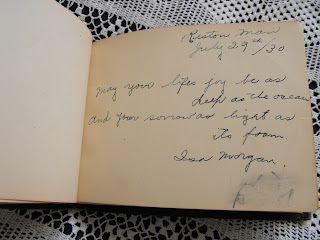 Reston Man
July 29th/30
May your lifes joy be as
deep as the ocean
and your sorrow as light as
its foam.
Isa Morgan.